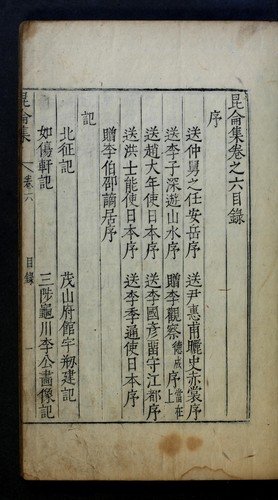 昆侖集卷之六目錄
序
送仲舅之任安岳序
送尹惠甫曬史赤裳序
送李子深遊山水序
贈李觀察德成序當在上
送趙大年使日本序
送李國彥留守江都序
送洪士能使日本序
送李季通使日本序
贈李伯邵繭居序
記
北征記
茂山府館宇刱建記
如傷軒記
三陟龜川李公畵像記
昆侖集
卷六
目錄
一